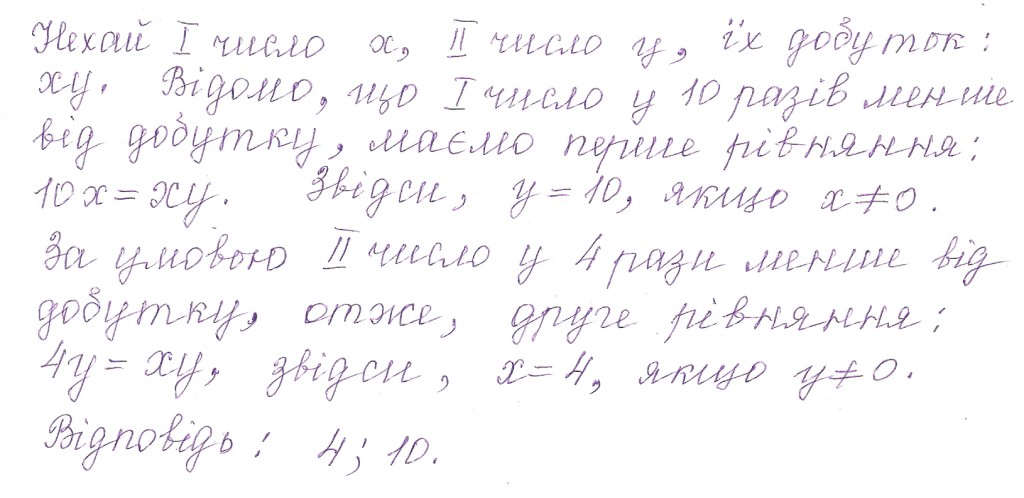 Нехай I число x, II число y, їх добуток:
xy. Відомо, що I число у 10 разів менше
від добутку, маємо перше рівняння:
10x = xy. Звідси, y = 10, якщо x ≠ 0.
За умовою II число у 4 рази менше від
добутку, отже, друге рівняння:
4y = xy, звідси, x = 4, якщо y ≠ 0.
Відповідь: 4; 10.